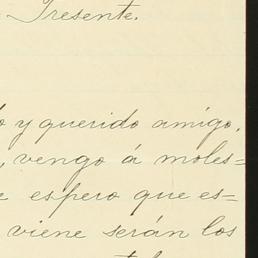 Presente.
y querido amigo,
vengo á moles=
espero que es=
viene serán los